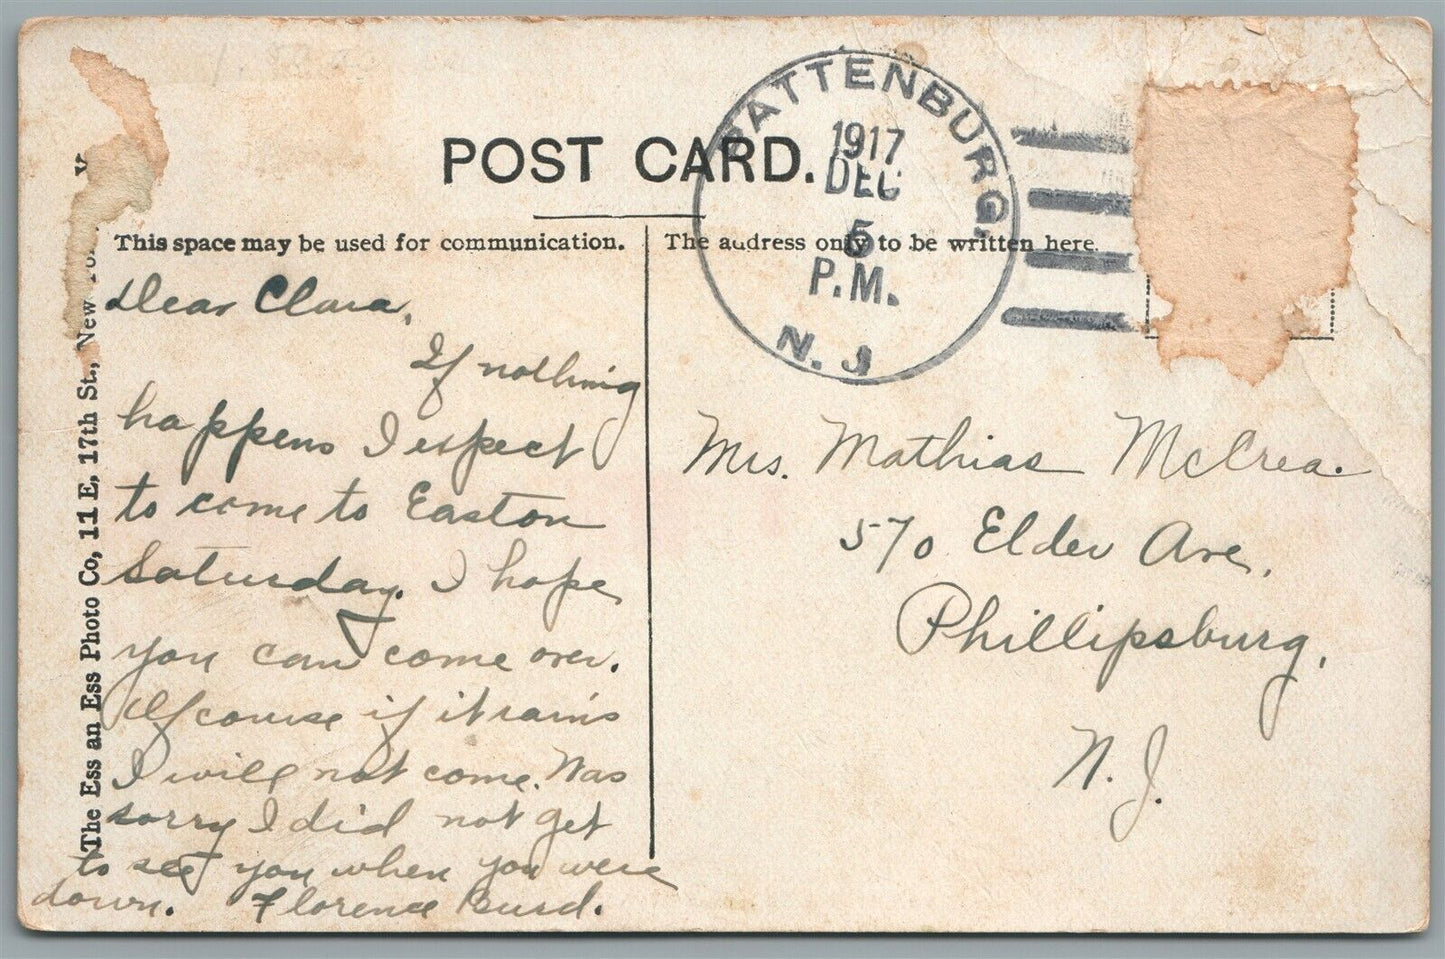 POST CARD.
PATTENBURG,
1917
DEC
5
P.M.
N. J
This space may be used for communication.
The address only to be written here.
The Ess an Ess Photo Co, 11 E, 17th St., New
Dear Clara,
If nothing
happens I expect
to come to Easton
Saturday. I hope
you can come over.
Of course if it rains
I will not come. Was
sorry I did not get
to see you when you were
down. Florence Burd.
Mrs. Mathias McCrea.
570 Elder Ave,
Phillipsburg,
N. J.